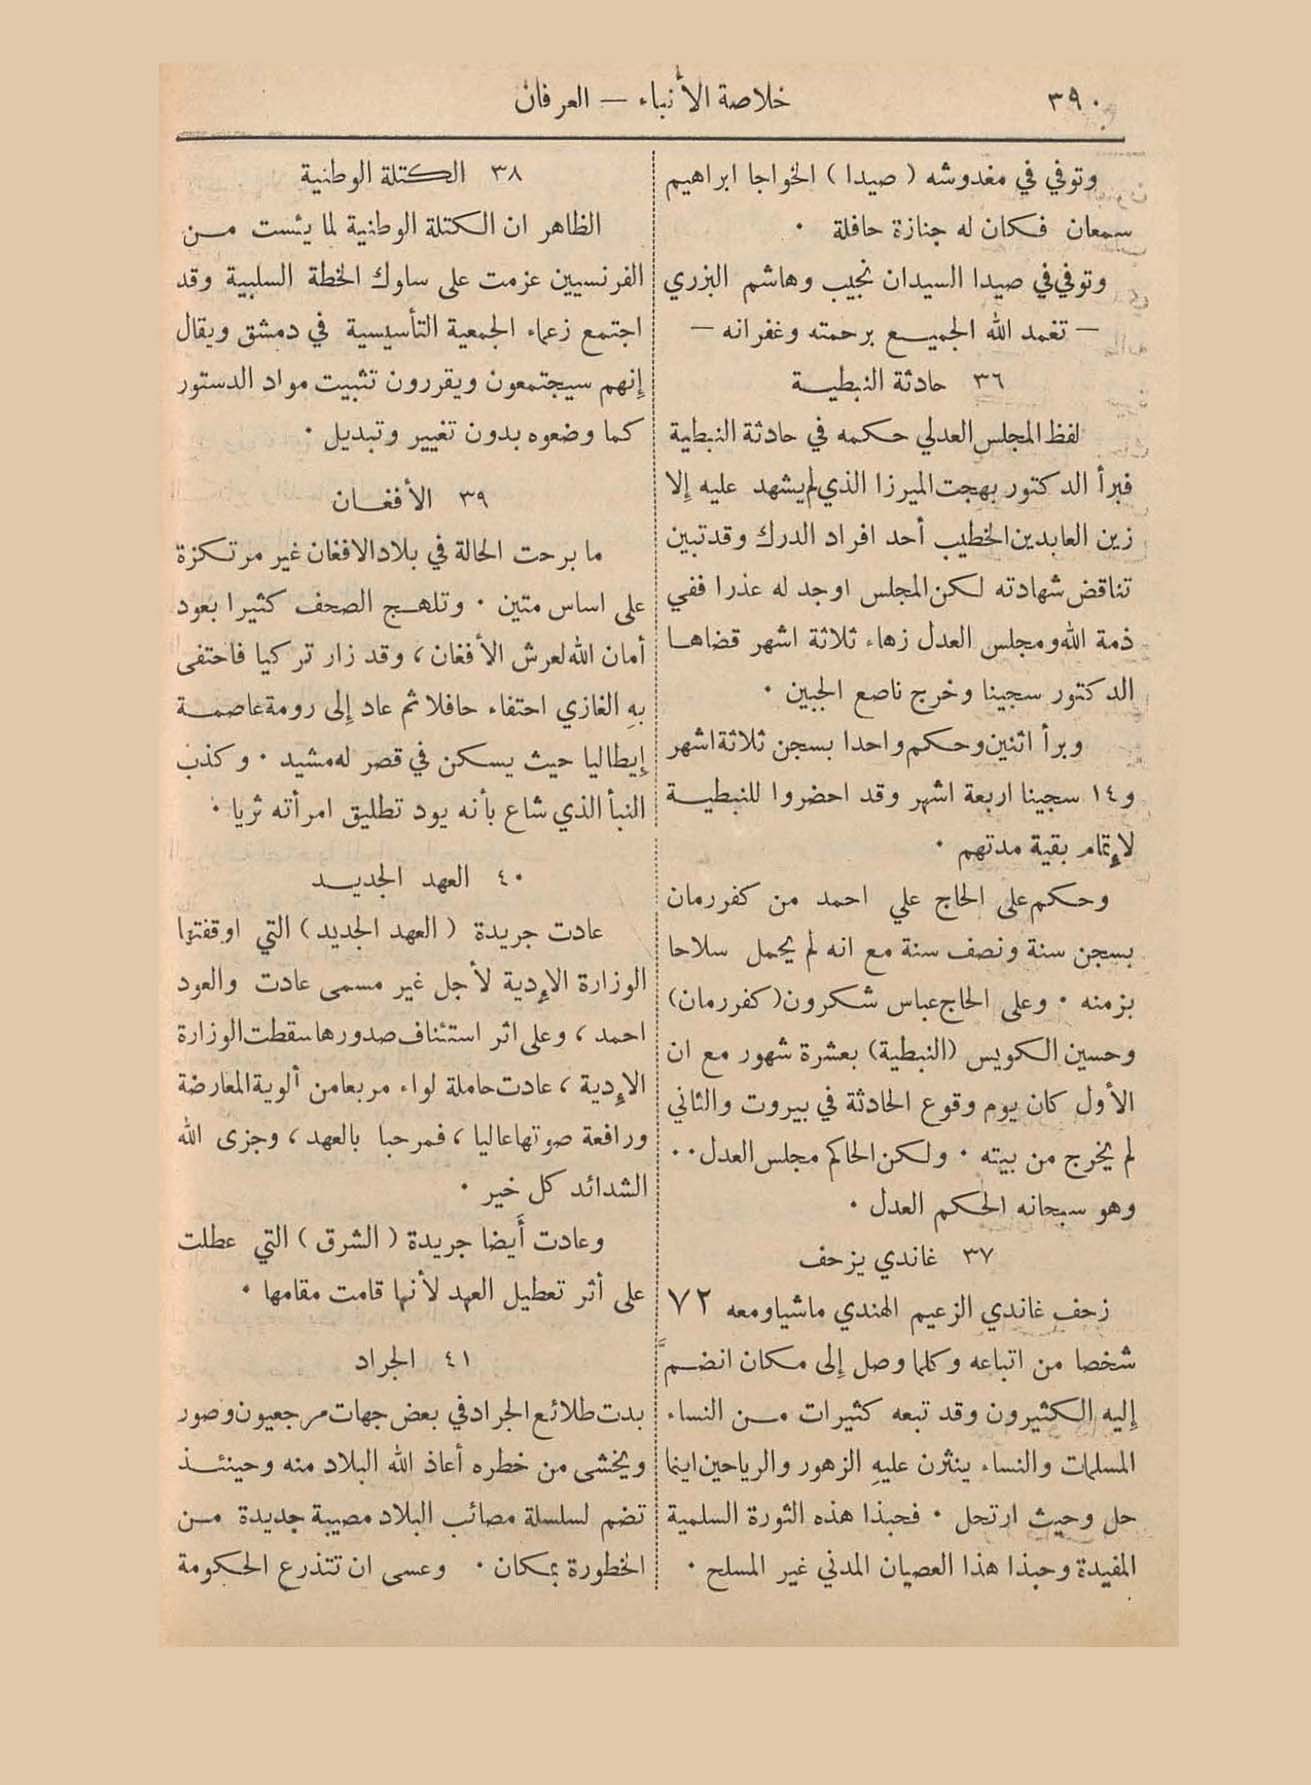 ٣٩٠
خلاصة الأنباء — العرفان
وتوفي في مغدوشه ( صيدا ) الخواجا ابراهيم
سمعان فكان له جنازة حافلة ٠
وتوفي في صيدا السيدان نجيب وهاشم البزري
— تغمد الله الجميع برحمته وغفرانه —
٣٦ حادثة النبطية
لفظ المجلس العدلي حكمه في حادثة النبطية
فبرأ الدكتور بهجت الميرزا الذي لم يشهد عليه إلا
زين العابدين الخطيب أحد افراد الدرك وقد تبين
تناقض شهادته لكن المجلس اوجد له عذرا ففي
ذمة الله ومجلس العدل زهاء ثلاثة اشهر قضاها
الدكتور سجينا وخرج ناصع الجبين ٠
وبرأ اثنين وحكم واحدا بسجن ثلاثة اشهر
و١٤ سجينا اربعة اشهر وقد احضروا للنبطية
لإتمام بقية مدتهم ٠
وحكم على الحاج علي احمد من كفررمان
بسجن سنة ونصف سنة مع انه لم يحمل سلاحا
بزمنه ٠ وعلى الحاج عباس شكرون (كفررمان)
وحسين الكويس (النبطية) بعشرة شهور مع ان
الأول كان يوم وقوع الحادثة في بيروت والثاني
لم يخرج من بيته ٠ ولكن الحاكم مجلس العدل ٠٠
وهو سبحانه الحكم العدل ٠
٣٧ غاندي يزحف
زحف غاندي الزعيم الهندي ماشيا ومعه ٧٢
شخصا من اتباعه وكلما وصل إلى مكان انضمّ
إليه الكثيرون وقد تبعه كثيرات من النساء
المسلمات والنساء ينثرن عليهِ الزهور والرياحين اينما
حل وحيث ارتحل ٠ فحبذا هذه الثورة السلمية
المفيدة وحبذا هذا العصيان المدني غير المسلح ٠
٣٨ الكتلة الوطنية
الظاهر ان الكتلة الوطنية لما يئست من
الفرنسيين عزمت على سلوك الخطة السلبية وقد
اجتمع زعماء الجمعية التأسيسية في دمشق ويقال
إنهم سيجتمعون ويقررون تثبيت مواد الدستور
كما وضعوه بدون تغيير وتبديل ٠
٣٩ الأفغان
ما برحت الحالة في بلاد الافغان غير مرتكزة
على اساس متين ٠ وتلهج الصحف كثيرا بعود
أمان الله لعرش الأفغان ، وقد زار تركيا فاحتفى
بهِ الغازي احتفاء حافلا ثم عاد إلى رومة عاصمة
إيطاليا حيث يسكن في قصر له مشيد ٠ وكذب
النبأ الذي شاع بأنه يود تطليق امرأته ثريا ٠
٤٠ العهد الجديد
عادت جريدة ( العهد الجديد ) التي اوقفتها
الوزارة الإدية لأجل غير مسمى عادت والعود
احمد ، وعلى اثر استئناف صدورها سقطت الوزارة
الإدية ، عادت حاملة لواء مربعا من ألوية المعارضة
ورافعة صوتها عاليا ، فمرحبا بالعهد ، وجزى الله
الشدائد كل خير ٠
وعادت أَيضا جريدة ( الشرق ) التي عطلت
على أثر تعطيل العهد لأنها قامت مقامها ٠
٤١ الجراد
بدت طلائع الجراد في بعض جهات مرجعيون وصور
ويخشى من خطره أعاذ الله البلاد منه وحينئذ
تضم لسلسلة مصائب البلاد مصيبة جديدة من
الخطورة بمكان ٠ وعسى ان تتذرع الحكومة